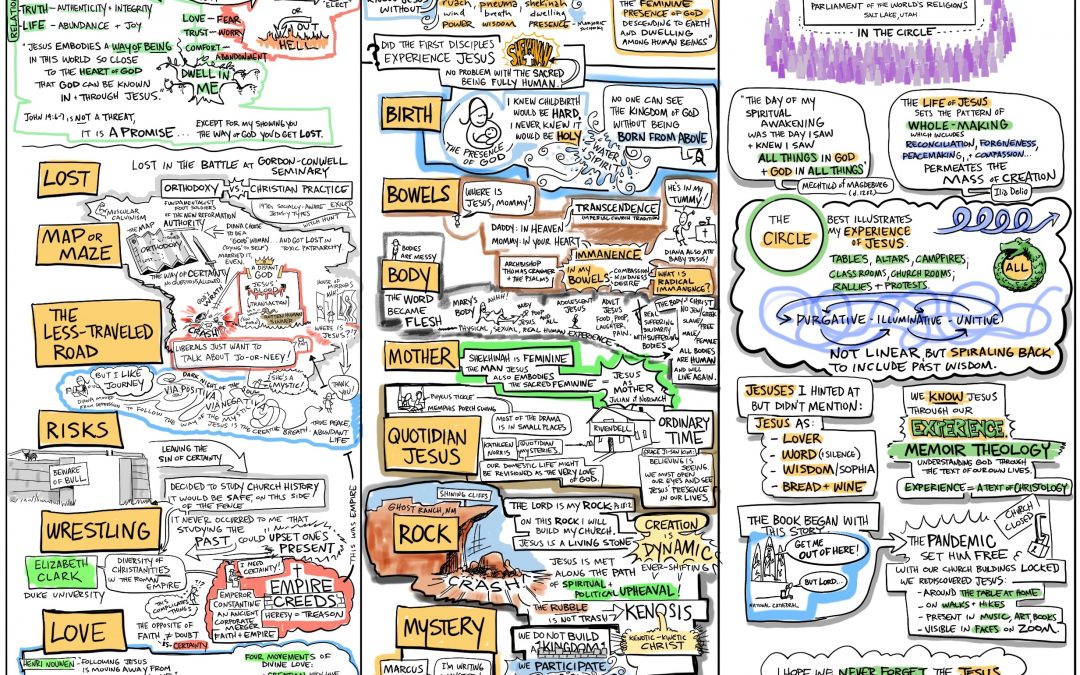 TRUTH - AUTHENTICITY + INTEGRITY
LIFE - ABUNDANCE + JOY
"JESUS EMBODIES A WAY OF BEING
IN THIS WORLD SO CLOSE
TO THE HEART OF GOD
THAT GOD CAN BE KNOWN
IN + THROUGH JESUS."
LOVE - FEAR
TRUST - WORRY
COMFORT -
ABANDONMENT
ELECT
OUT
HELL
DWELL IN
ME
JOHN 14:6-7 IS NOT A THREAT,
IT IS A PROMISE...
EXCEPT FOR MY SHOWING YOU
THE WAY OF GOD YOU'D GET LOST.
LOST
LOST IN THE BATTLE AT GORDON-CONWELL
SEMINARY
ORTHODOXY VS. CHRISTIAN PRACTICE
MUSCULAR
CALVINISM
FUNDAMENTALIST
FOOT SOLDIERS
OF THE NEW REFORMATION
1970s SOCIALLY-AWARE
JESUS-Y TYPES
EXILED
WITCH HUNT
MAP OR
MAZE
THE MAP
ORTHODOXY
LOST
AUTHORITY
DIANA CHOSE
TO BE A
"GOOD" WOMAN...
MARRIED IT,
EVEN.
...AND GOT LOST IN
TOXIC PATRIARCHY
THE WAY OF CERTAINTY
NO QUESTIONS ALLOWED
A DISTANT
GOD
JESUS'
BLOOD
TRANSACTION
SINNER
GOD'S WRATH
HOUSE OF
MIRRORS
WHERE IS
JESUS?
CRASH
THE
LESS-TRAVELED
ROAD
LIBERALS JUST WANT TO
TALK ABOUT JO-OR-NEEY!
BUT I LIKE
JOURNEY
DARK NIGHT OF THE SOUL
VIA POSITIVA
VIA NEGATIVA
SHE'S A
MYSTIC!
THANK
YOU!
TO FOLLOW THE WAY
JESUS IS THE CREATIVE BREATH
TRUE PEACE,
ABUNDANT
LIFE
RISKS
LEAVING THE
SIN OF CERTAINTY
BEWARE
OF BULL
DECIDED TO STUDY CHURCH HISTORY
IT WOULD BE SAFE, ON THIS SIDE
OF THE FENCE
WRESTLING
IT NEVER OCCURRED TO ME THAT
STUDYING THE
PAST COULD UPSET ONE'S
PRESENT
THIS WAS EMPIRE
ELIZABETH
CLARK
DUKE UNIVERSITY
DIVERSITY OF
CHRISTIANITIES
IN THE ROMAN
EMPIRE
THIS COMPLICATES
THINGS
I NEED
CERTAINTY!
EMPEROR
CONSTANTINE
AN ANCIENT
CORPORATE
MERGER
FAITH + EMPIRE
EMPIRE
CREEDS
HERESY = TREASON
LOVE
THE OPPOSITE OF
FAITH ≠ DOUBT
IS CERTAINTY
HENRI NOUWEN - FOLLOWING JESUS
IS MOVING AWAY FROM
FOUR MOVEMENTS OF
DIVINE LOVE:
WITHOUT
ruach, pneuma, shekinah
wind breath dwelling
POWER WISDOM PRESENCE
THE FEMININE
PRESENCE OF GOD
DESCENDING TO EARTH
AND DWELLING
AMONG HUMAN BEINGS"
DID THE FIRST DISCIPLES
EXPERIENCE JESUS
NO PROBLEM WITH THE SACRED
BEING FULLY HUMAN.
BIRTH
THE PRESENCE
OF GOD
I KNEW CHILDBIRTH
WOULD BE HARD,
I NEVER KNEW IT
WOULD BE HOLY
NO ONE CAN SEE
THE KINGDOM OF GOD
WITHOUT BEING
BORN FROM ABOVE
WATER
SPIRIT
BOWELS
WHERE IS
JESUS, MOMMY?
TRANSCENDENCE
IMPERIAL CHURCH TRADITION
HE'S IN MY
TUMMY!
DADDY: IN HEAVEN
MOMMY: IN YOUR HEART
IMMANENCE
DIANA ALSO ATE
BABY JESUS!
BODIES
ARE MESSY
ARCHBISHOP
THOMAS CRANMER
+ THE PSALMS
IN MY
BOWELS
COMPASSION
KINDNESS
DESIRE
WHAT IS
RADICAL
IMMANENCE?
BODY
THE WORD
BECAME
FLESH
MARY'S
BODY
AHHH!
BABY
POOP
AND ALL
ADOLESCENT
JESUS
ADULT
JESUS
FOOD, POOP,
LAUGHTER,
PAIN
REAL
SUFFERING,
SOLIDARITY
WITH SUFFERING
BODIES
THE BODY OF CHRIST
NO JEW/GREEK
SLAVE/FREE
MALE/
FEMALE
ALL BODIES
ARE HUMAN
AND WILL
LIVE AGAIN.
PHYSICAL, SEXUAL, REAL HUMAN EXPERIENCE
MOTHER
SHEKHINAH IS FEMININE
THE MAN JESUS
ALSO EMBODIES
THE SACRED FEMININE
JESUS
AS
MOTHER
JULIAN of NORWICH
PHYLLIS TICKLE
MEMPHIS PORCH SWING
QUOTIDIAN
JESUS
MOST OF THE DRAMA
IS IN SMALL PLACES
RIVENDELL
ORDINARY
TIME
KATHLEEN
NORRIS
QUOTIDIAN
MYSTERIES
OUR DOMESTIC LIFE MIGHT
BE REVISIONED AS THE VERY LOVE
OF GOD.
GRACE JI-SUN KIM:
BELIEVING IS
SEEING.
WE MUST OPEN
OUR EYES AND SEE
JESUS' PRESENCE
IN OUR LIVES.
SHINING CLIFFS
GHOST RANCH, NM
ROCK
CRASH
THE LORD IS MY ROCK
ON THIS ROCK I WILL
BUILD MY CHURCH.
JESUS IS A LIVING STONE
CREATION
IS
DYNAMIC
EVER-SHIFTING
JESUS IS MET
ALONG THE PATH
OF SPIRITUAL +
POLITICAL UPHEAVAL!
THE RUBBLE
IS NOT TRASH
KENOSIS
MYSTERY
WE DO NOT BUILD
KINGDOM
WE PARTICIPATE
KENOTIC-KINETIC
CHRIST
MARCUS
I'M WRITING
PARLIAMENT OF THE WORLD'S RELIGIONS
SALT LAKE, UTAH
IN THE CIRCLE
"THE DAY OF MY
SPIRITUAL
AWAKENING
WAS THE DAY I SAW
+ KNEW I SAW
ALL THINGS IN GOD
+ GOD IN ALL THINGS"
MECHTILD of MAGDEBURG
(d. 1282)
THE LIFE OF JESUS
SETS THE PATTERN OF
WHOLE-MAKING
WHICH INCLUDES
RECONCILIATION, FORGIVENESS,
PEACEMAKING, + COMPASSION...
PERMEATES THE
MASS OF CREATION
Ilia Delio
THE
CIRCLE
BEST ILLUSTRATES
MY EXPERIENCE
OF JESUS.
TABLES, ALTARS, CAMPFIRES,
CLASSROOMS, CHURCH ROOMS,
RALLIES + PROTESTS.
ALL
PURGATIVE - ILLUMINATIVE - UNITIVE
NOT LINEAR, BUT SPIRALING BACK
TO INCLUDE PAST WISDOM.
JESUSES I HINTED AT
BUT DIDN'T MENTION:
JESUS AS:
- LOVER
- WORD (+ SILENCE)
- WISDOM/SOPHIA
- BREAD + WINE
WE KNOW JESUS
THROUGH OUR
EXPERIENCE
MEMOIR THEOLOGY
UNDERSTANDING GOD THROUGH
THE TEXT OF OUR OWN LIVES.
EXPERIENCE = A TEXT OF CHRISTOLOGY
THE BOOK BEGAN WITH
THIS STORY
GET ME
OUT OF HERE!
BUT LORD...
NATIONAL CATHEDRAL
CHURCH
CLOSED
THE PANDEMIC
SET HIM FREE
WITH OUR CHURCH BUILDINGS LOCKED
WE REDISCOVERED JESUS:
- AROUND THE TABLE AT HOME
- ON WALKS + HIKES
- PRESENT IN MUSIC, ART, BOOKS
- VISIBLE IN FACES ON ZOOM.
I HOPE WE NEVER FORGET THE JESUS